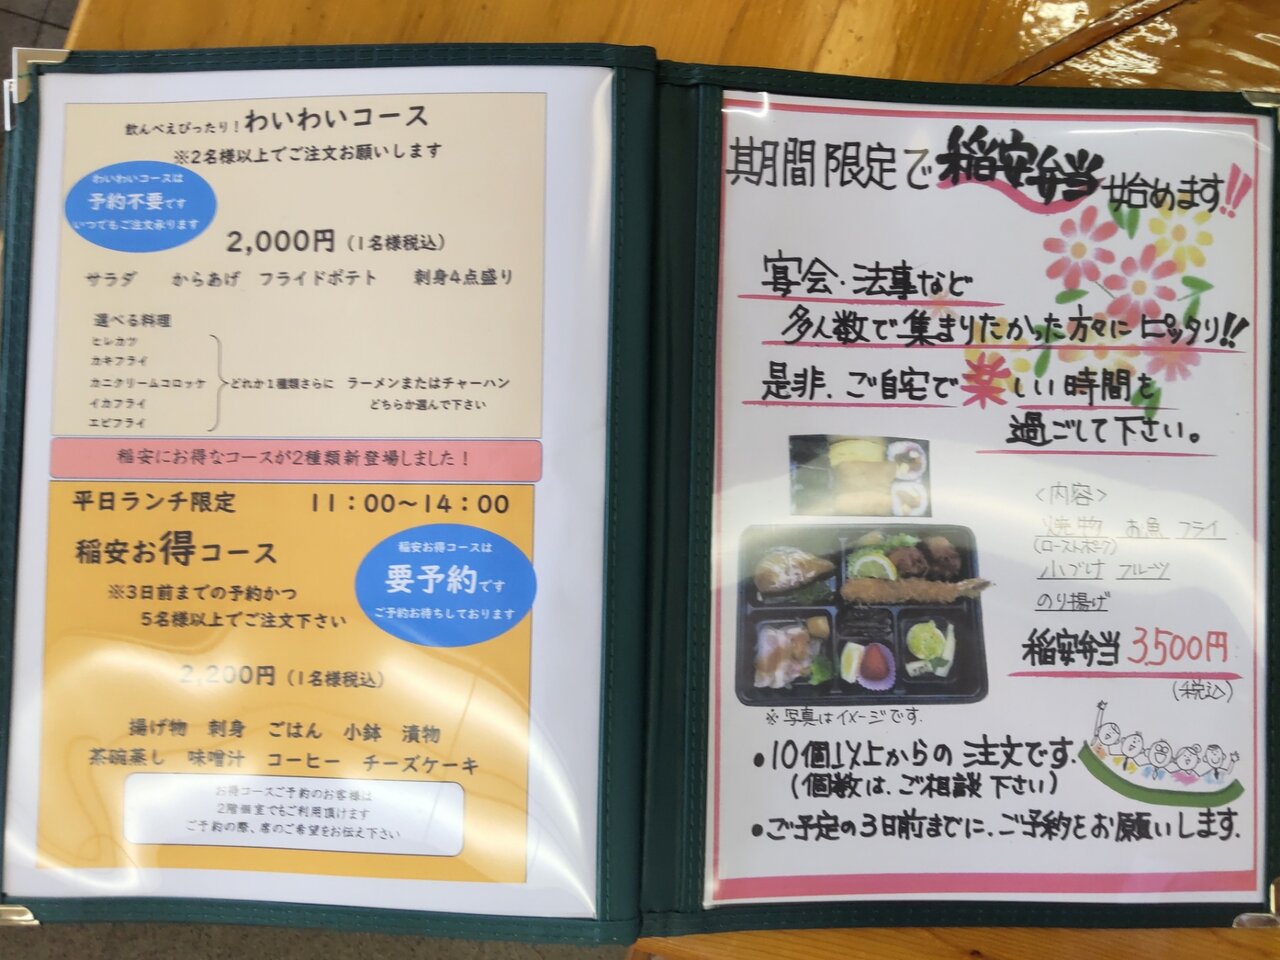 飲んべえぴったり!わいわいコース
※2名様以上でご注文お願いします
わいわいコースは
予約不要です
いつでもご注文承ります
2,000円(1名様税込)
サラダ からあげ フライドポテト 刺身4点盛り
選べる料理
ヒレカツ
カキフライ
カニクリームコロッケ
イカフライ
エビフライ
どれか1種類さらに ラーメンまたはチャーハン
どちらか選んで下さい
稲安にお得なコースが2種類新登場しました!
平日ランチ限定 11:00~14:00
稲安お得コース
稲安お得コースは
要予約です
ご予約お待ちしております
※3日前までの予約かつ
5名様以上でご注文下さい
2,200円(1名様税込)
揚げ物 刺身 ごはん 小鉢 漬物
茶碗蒸し 味噌汁 コーヒー チーズケーキ
お得コースご予約のお客様は
2階個室でもご利用頂けます
ご予約の際、席のご希望をお伝え下さい
期間限定で稲安弁当始めます!!
宴会・法事など
多人数で集まりたかった方々にピッタリ!!
是非、ご自宅で楽しい時間を
過ごして下さい。
<内容>
焼物 お魚 フライ
(ローストポーク)
小づけ フルーツ
のり揚げ
稲安弁当 3,500円
(税込)
※写真はイメージです.
•10個以上からの注文です.
(個数は、ご相談下さい)
•ご予定の3日前までに、ご予約をお願いします.